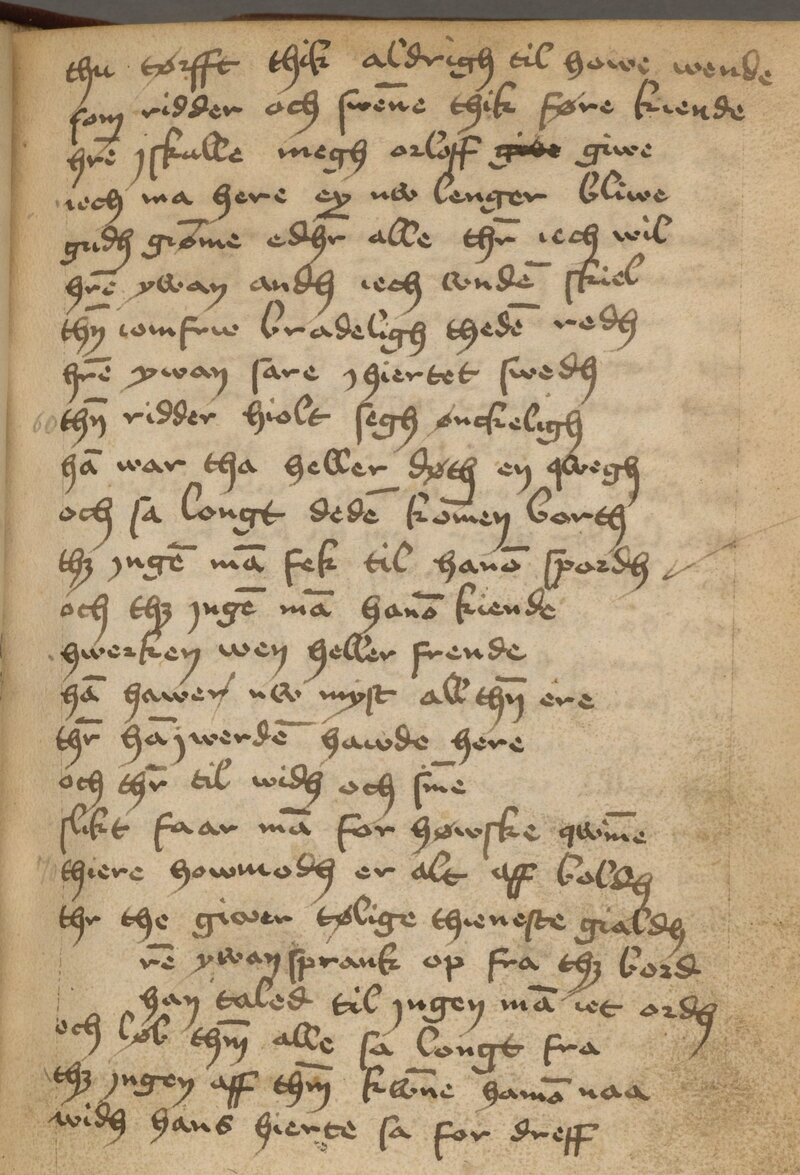 thu tørfft thik aldrigh til howe wende
som ridder och swēne thik føre kiende
hrē jskulle megh orloff giwe giwe
iech ma here ey nw lenger bliwe
gudh grøme edhr̄ alle thr̄ iech wil
hrē ywan andh iech wndē skiel
thn̄ iomfrw bradeligh thedē redh
hrē ywan sare jhiertet swedh
thn̄ ridder hiolt segh ønckeligh
hā war tha heller døth en qwegh
och sa longt dedē komen borth
thꝫ jngē mā fek til hanō spordh
och thꝫ jngē mā hanō kiende
hwerken wen heller frende
hā hawer nw myst all thn̄ ere
thr̄ hā jwerdē hawde here
och thr̄ til widh och sin̄e
slikt faar mā for høwske qwin̄e
thiere howmodh er alt aff boldh
thr the giwer tølige thieneste gialdh
rē ywan sprank op fra thꝫ bord
han taled til jngen mā iet ordh
och løb thm̄ alle sa longt fra
thꝫ jngen aff thm̄ kwn̄e hanō naa
widh hans hierte sa for dreff